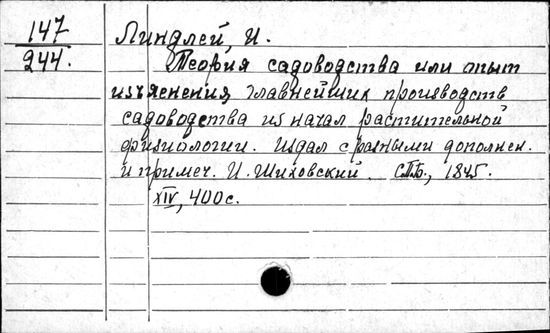 147
244.
Линдлей, И.
Теория садоводства или опыт
изъяснения главнейших производств
садоводства из начал растительной
физиологии. Издал с разными дополнен.
и примеч. И. Шиховский. СПБ., 1845.
XIV, 400 с.